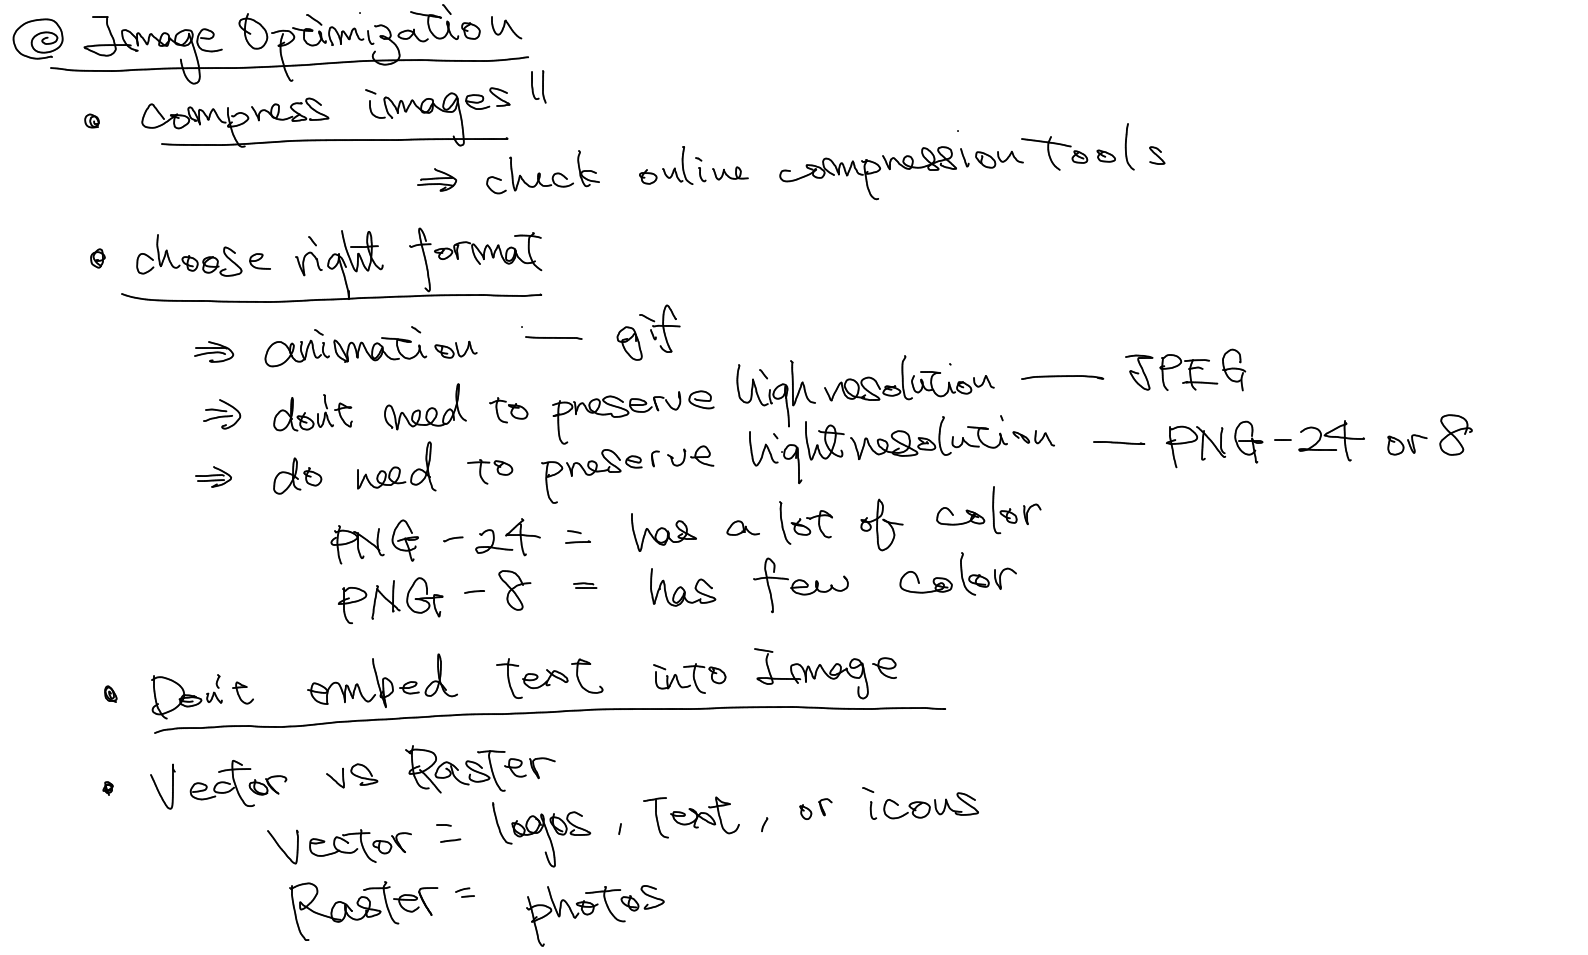 @ Image Optimization
• compress images !!
⇒ check online compression Tools
• choose right format
⇒ animation — gif
⇒ don't need to preserve high resolution — JPEG
⇒ do need to preserve hight resolution — PNG-24 or 8
PNG-24 = has a lot of color
PNG-8 = has few color
• Don't embed text into Image
• Vector vs Raster
Vector = logos, Text, or icons
Raster = photos